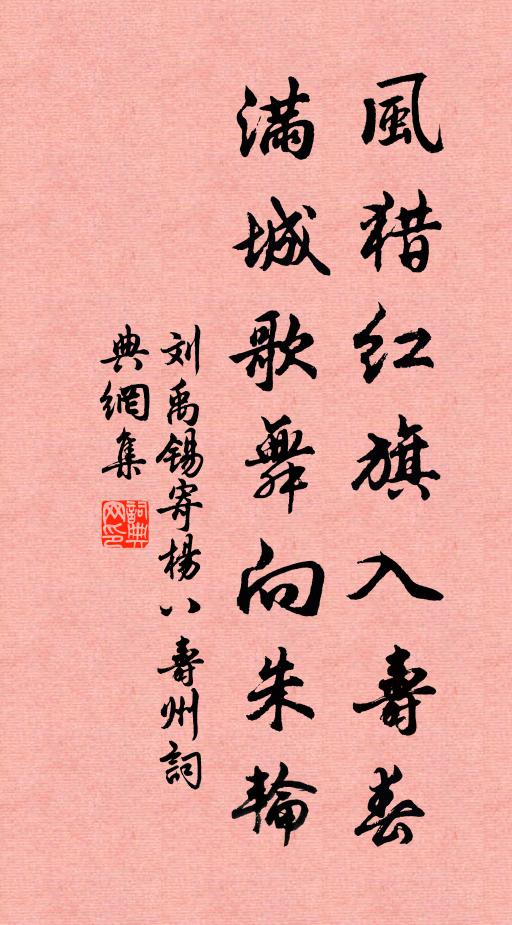 風猎红旗入壽春
滿城歌舞向朱輪
刘禹錫寄楊八壽州詞
典網集
詞典網印